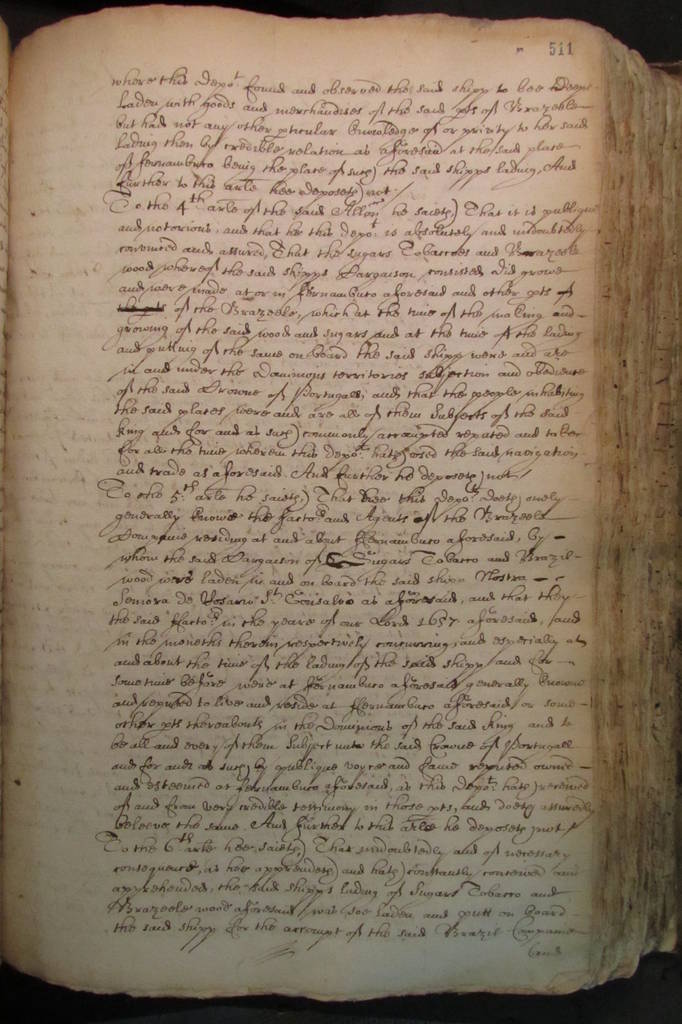 511
where this depo:t found and observed the said shipp to bee deepe
laden with goods and merchandizes of the said pts of Brazeele
but had not any other pticular knowledge of or privity to her said
lading then by credible relation as aforesaid at the said place
of fernambuco being the place of such the said shipps lading, And
further to this arle hee deposeth not./
To the 4th arle of the said Allon he saieth That it is publique
and notorious, and that he this depo:t is absolutely and undoubtedly
convinced and assured, That the sugars Tobaccoes and Brazeele
wood whereof the said shipps Cargaison consisted did growe
and were made at or in fernambuco aforesaid and other pts of
the pts of the Brazeele, which at the time of the making and
growing of the said wood and sugars and at the time of the lading
and putting of the same on board the said shipp were and are
in and under the Dominions territories subjection and obedience
of the said Crowne of Portugall, and that the people inhabiting
the said places were and are all of them Subjects of the said
king and for and as such commonly accompted reputed and taken
for all the time wherein this depo:t hath used the said navigation
and trade as aforesaid. And further he deposeth not./
To the 5:th arle he saieth That hee this depo:t doeth onely
generally knowe the factors and Agents of the Brazeele
Companie residing at and about fernambuco aforesaid, by
whom the said Cargaison of Sugars Tobacco and Brazil
wood were laden in and on board the said shipp Nostra
Seniora de Rosario St Gonsalvo as aforesaid, and that they
the said factors in the yeare of our Lord 1657 aforesaid, and
in the moneths therein respectively concurring, and especially at
and about the time of the lading of the said shipp and for
some time before were at fernambuco aforesaid generally knowne
and reputed to live and reside at fernambuco aforesaid or some
other pts thereabouts in the Dominions of the said king and to
be all and every of them Subject unto the said Crowne of Portugall
and for and as such by publique voyce and fame reputed owned
and esteemed at fernambuco aforesaid, as this depo:t hath received
of and from very credible testimony in those pts, and doeth assuredly
beleeve the same. And further to this arle he deposeth not./
To the 6th arle hee saieth That undoubtedly and of necessary
consequence, as hee apprehendeth and hath constantly conceived and
apprehended, the said shipps lading of Sugars Tobacco and
Brazeele wood aforesaid, was soe laden and putt on board
the said shipp for the accompt of the said Brazil Companie